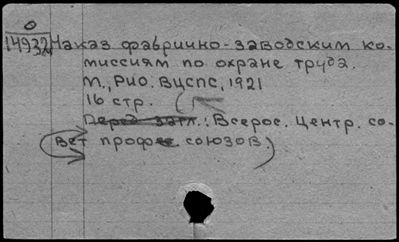 О
14932 Наказ фабрично-заводским ко-
миссиям по охране труда.
М., РИО. ВЦСПС, 1921
16 стр.
Перед загл.: Всерос. Центр. со-
вет проф союзов.